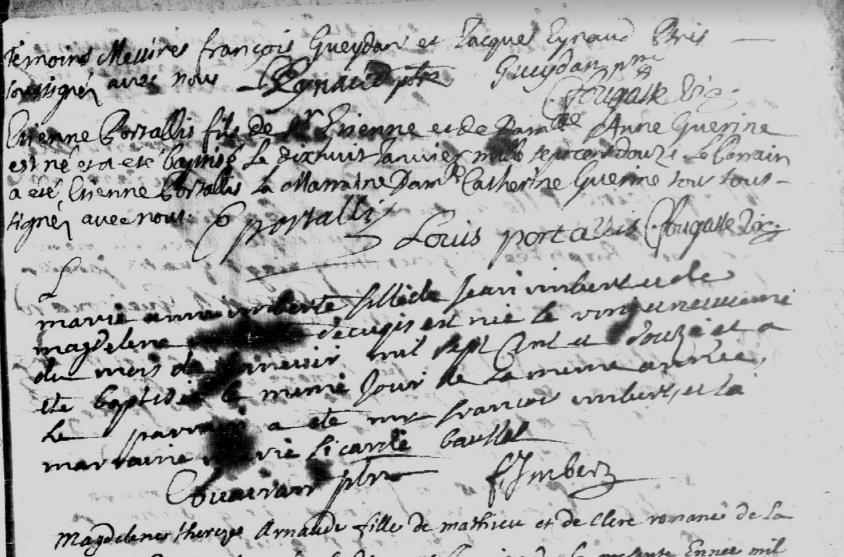 Temoins Messires françois Gueydan et Jacques Eynaud
soussignéz avec nous Eynaud ptre Gueydan
Fougasse Vic
Etienne Portallis fils de Sr Etienne et de Damlle Anne Guerine
est né et a eté baptisé le dixhuit Janvier mille sept cent douze Le Parrain
a eté Etienne Portallis La Marraine Damlle Catherine Guerine tous sous-
signéz avec nous. E portalli Louis portallis Fougasse Vic
marie anne imberte fille de Jean imbert et de
magdelene decugis est née le vingt neuvieme
du mois de mil sept Cent et douze et a
ete baptisée le meme Jour de la meme année,
Le parrain a ete mr francois imbert, et la
marraine sicarde
ptre f. Imbert
Magdelene therese Arnaude fille de mathieu et de Clere romane de la